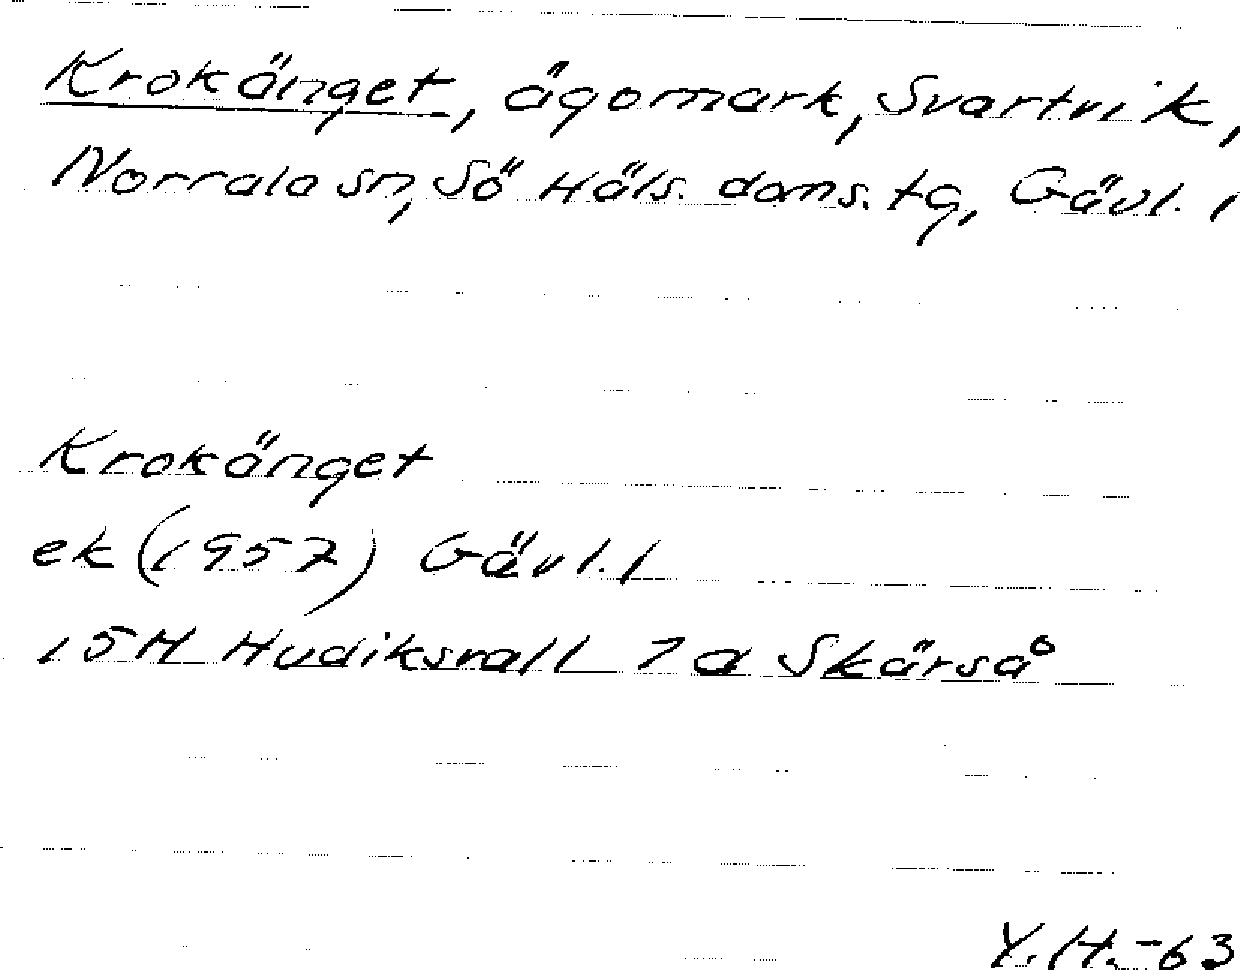 Krokänget, ägomark, Svartvik,
Norrala sn, Sö Häls. doms. tg, Gävl. l
Krokänget
ek (1957) Gävl. l
15H Hudiksvall 7a Skärså
Y.H.-63